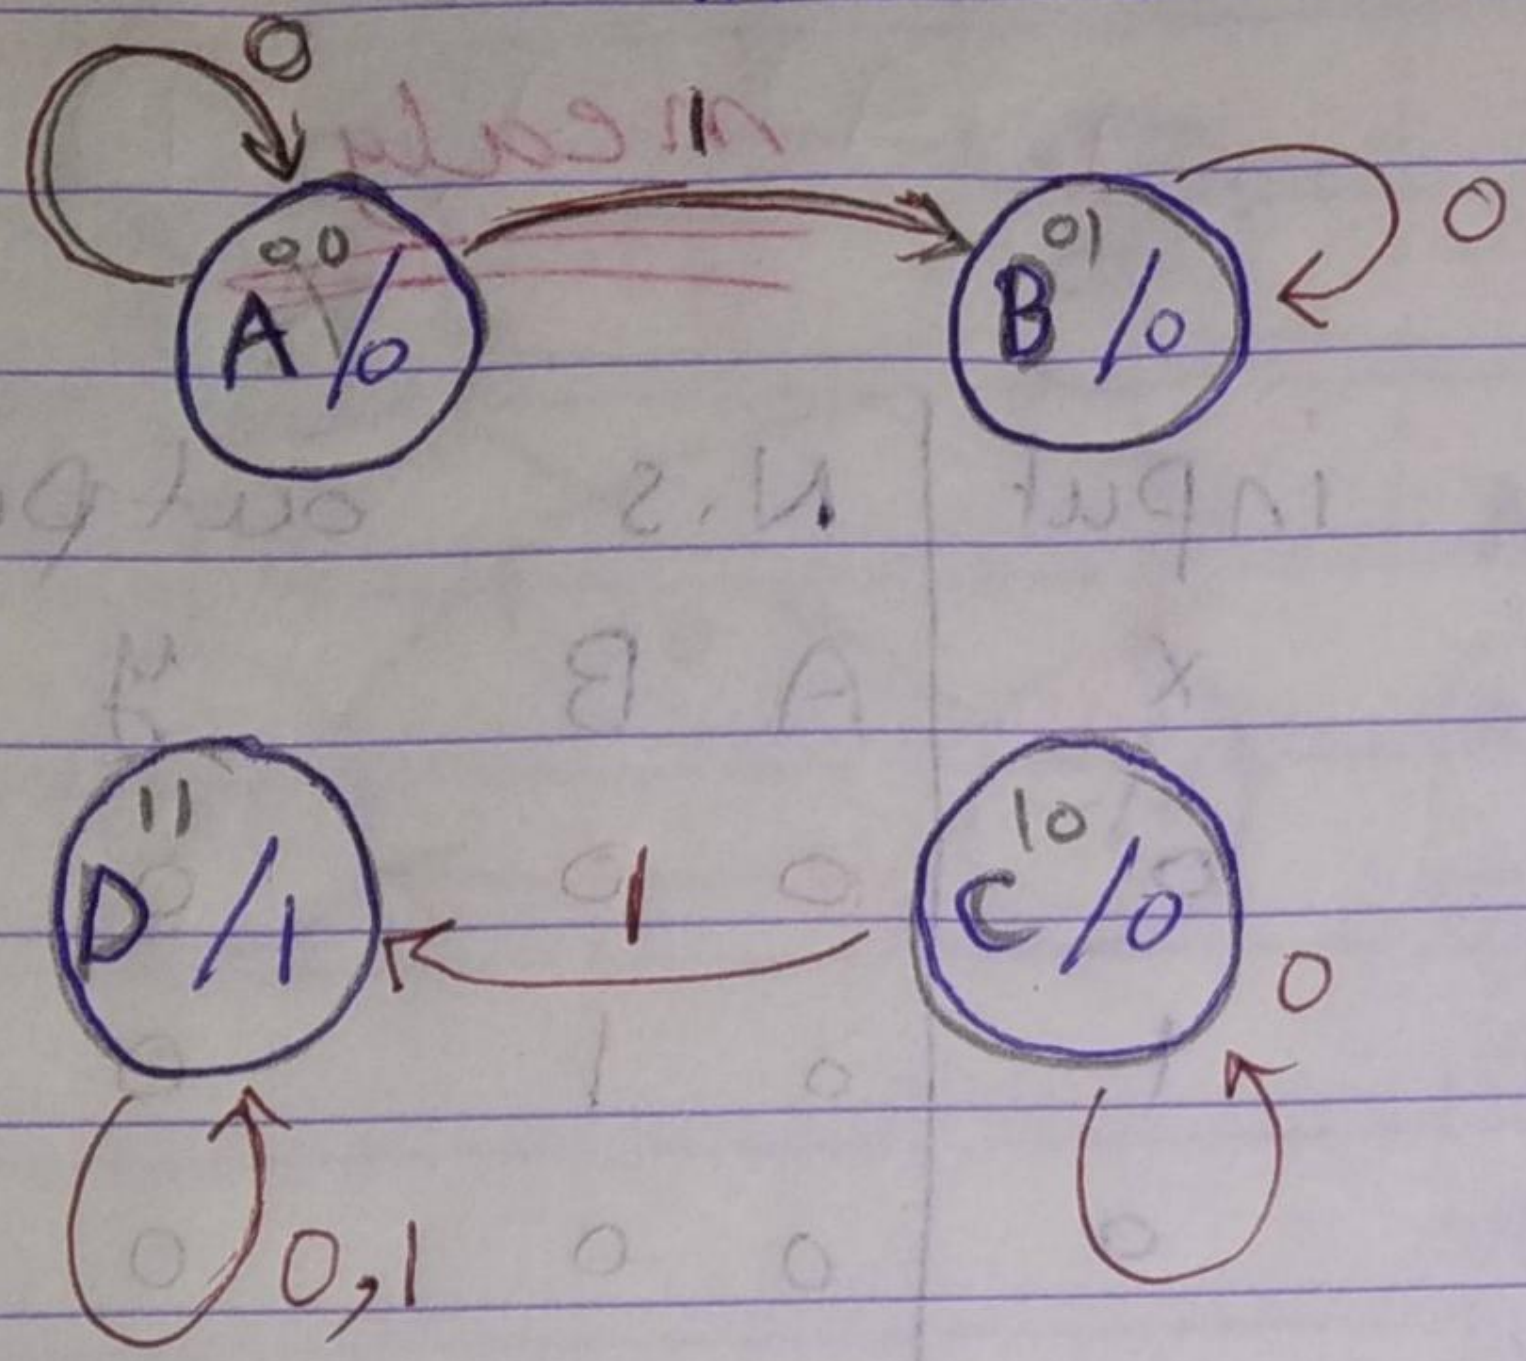 0
1
00
A/0
01
B/0
0
11
D/1
1
10
C/0
0
0,1